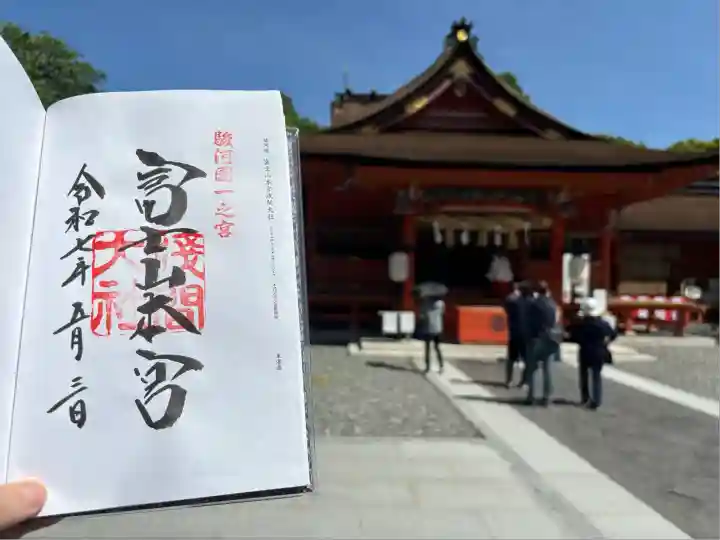 駿河國一之宮
富士山本宮
淺間大社
令和七年五月三日